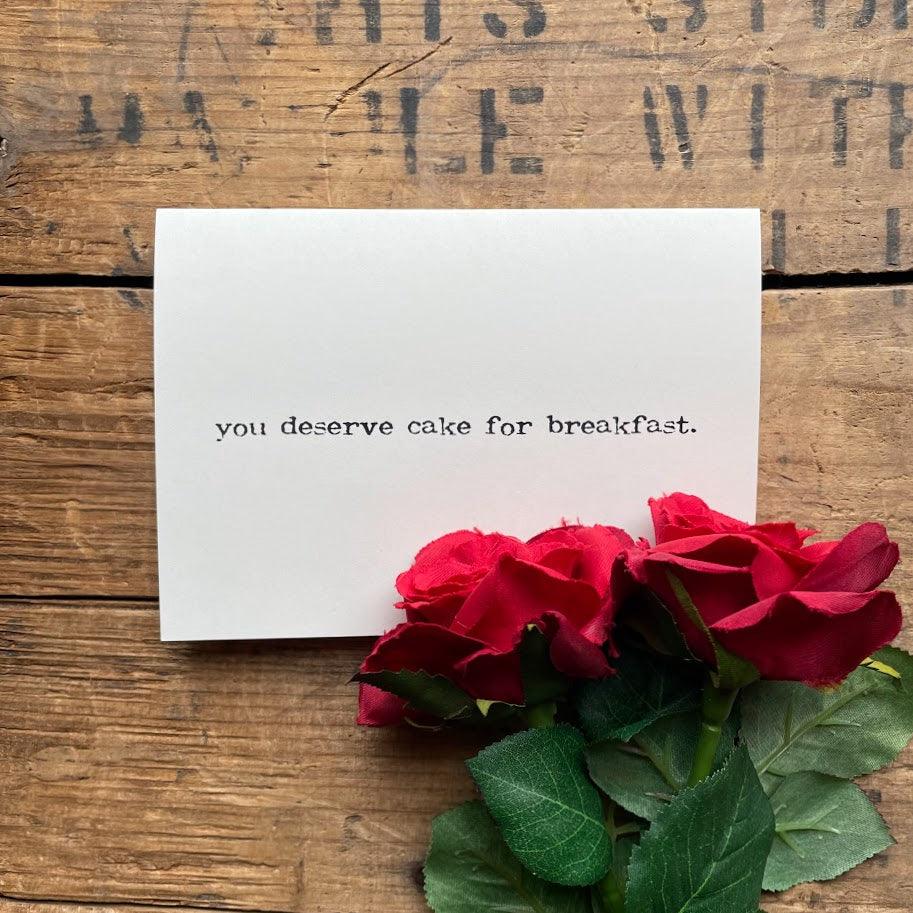 WIT
you deserve cake for breakfast.